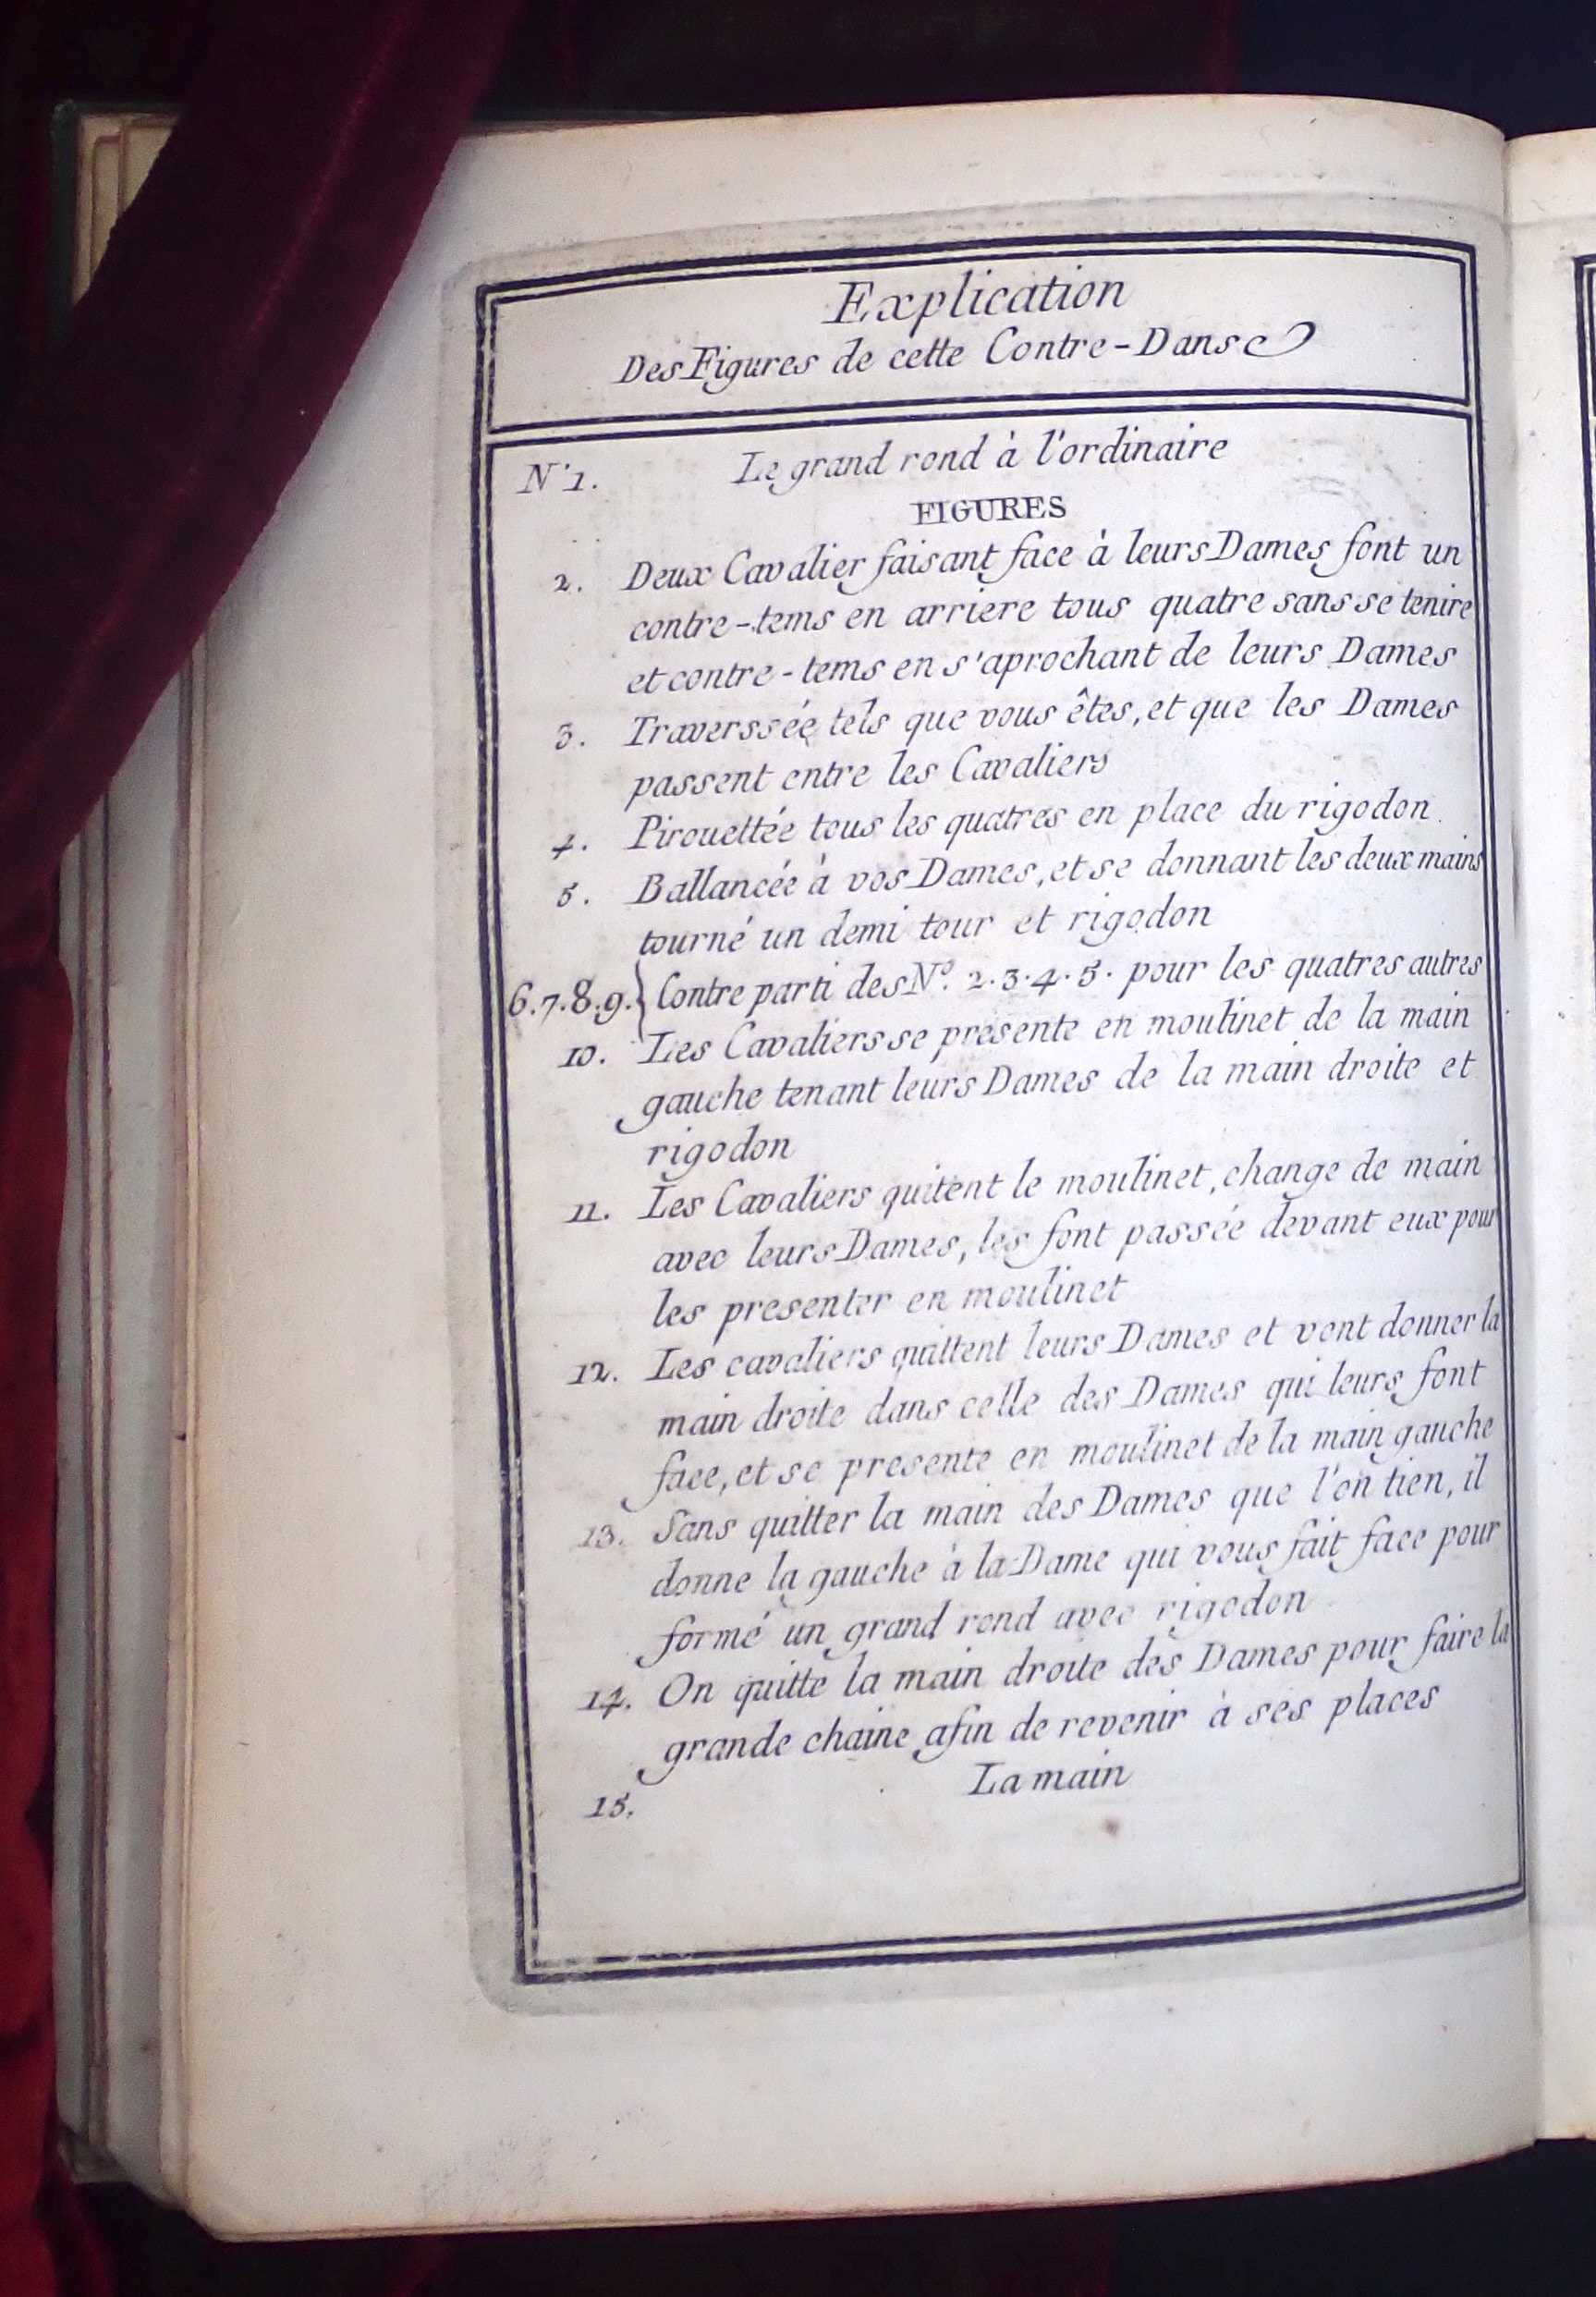 Explication
Des Figures de cette Contre-Danse
N° 1. Le grand rond à l'ordinaire
FIGURES
2. Deux Cavalier faisant face à leurs Dames font un
contre-tems en arriere tous quatre sans se tenire
et contre-tems en s'aprochant de leurs Dames
3. Traverssée tels que vous êtes, et que les Dames
passent entre les Cavaliers
4. Pirouettée tous les quatres en place du rigodon.
5. Ballancée à vos Dames, et se donnant les deux mains
tourné un demi tour et rigodon
6.7.8.9.} Contre parti des N°. 2.3.4.5. pour les quatres autres
10. Les Cavaliers se présente en moulinet de la main
gauche tenant leurs Dames de la main droite et
rigodon
11. Les Cavaliers quitent le moulinet, change de main
avec leurs Dames, les font passée devant eux pour
les presenter en moulinet
12. Les cavaliers quittent leurs Dames et vont donner la
main droite dans celle des Dames qui leurs font
face, et se presente en moulinet de la main gauche
13. Sans quitter la main des Dames que l'on tien, il
donne la gauche à la Dame qui vous fait face pour
formé un grand rond avec rigodon
14. On quitte la main droite des Dames pour faire la
grande chaine afin de revenir à ses places
15. La main